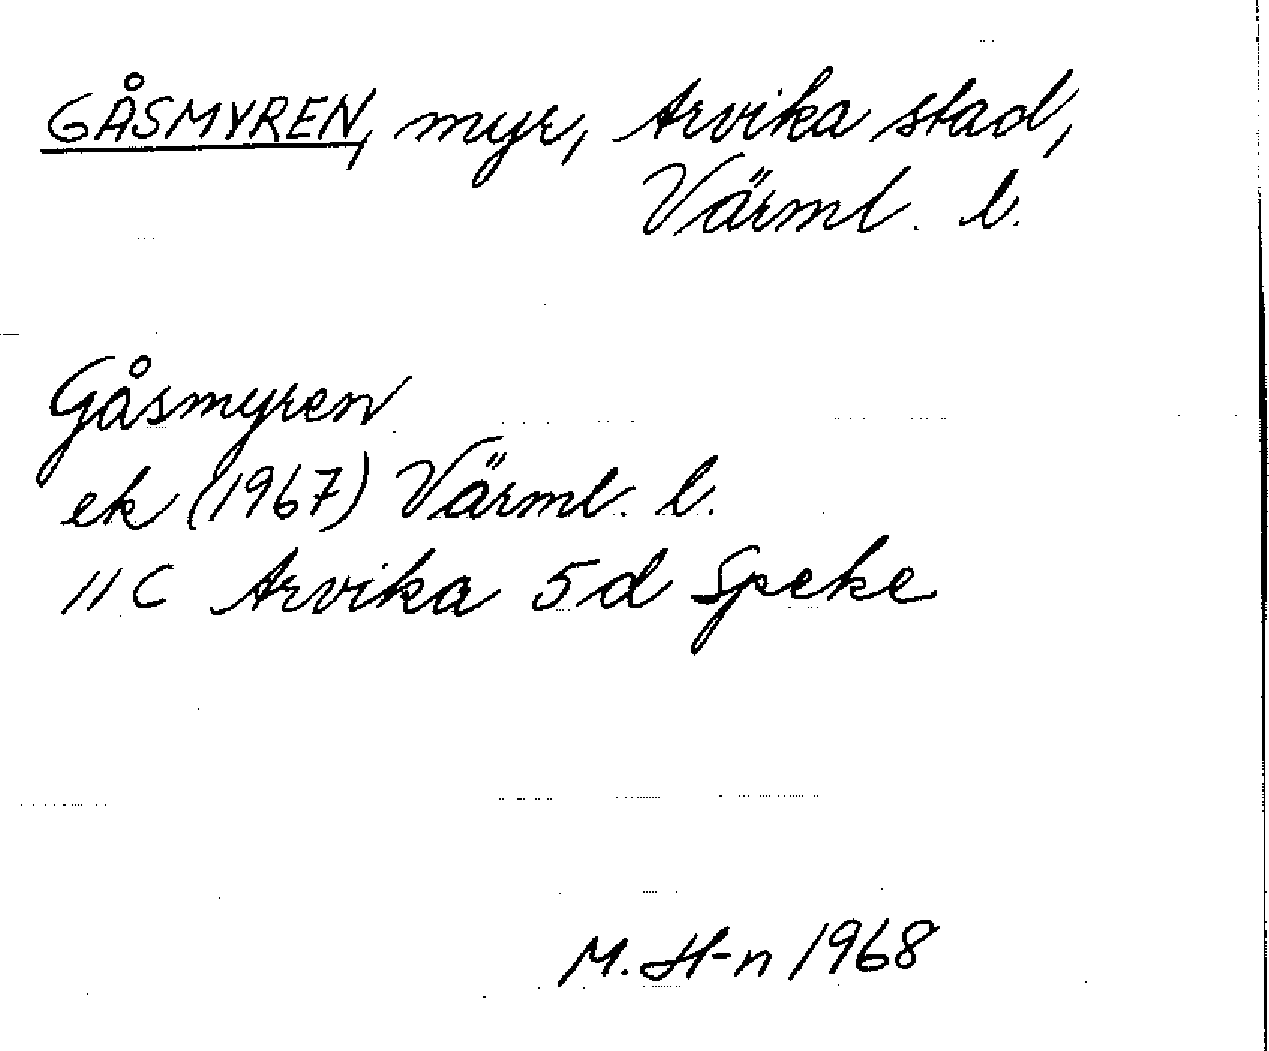 GÅSMYREN, myr, Arvika stad,
Värml. l.
Gåsmyren
ek (1967) Värml. l.
11 C Arvika 5d Speke
M. H-n 1968